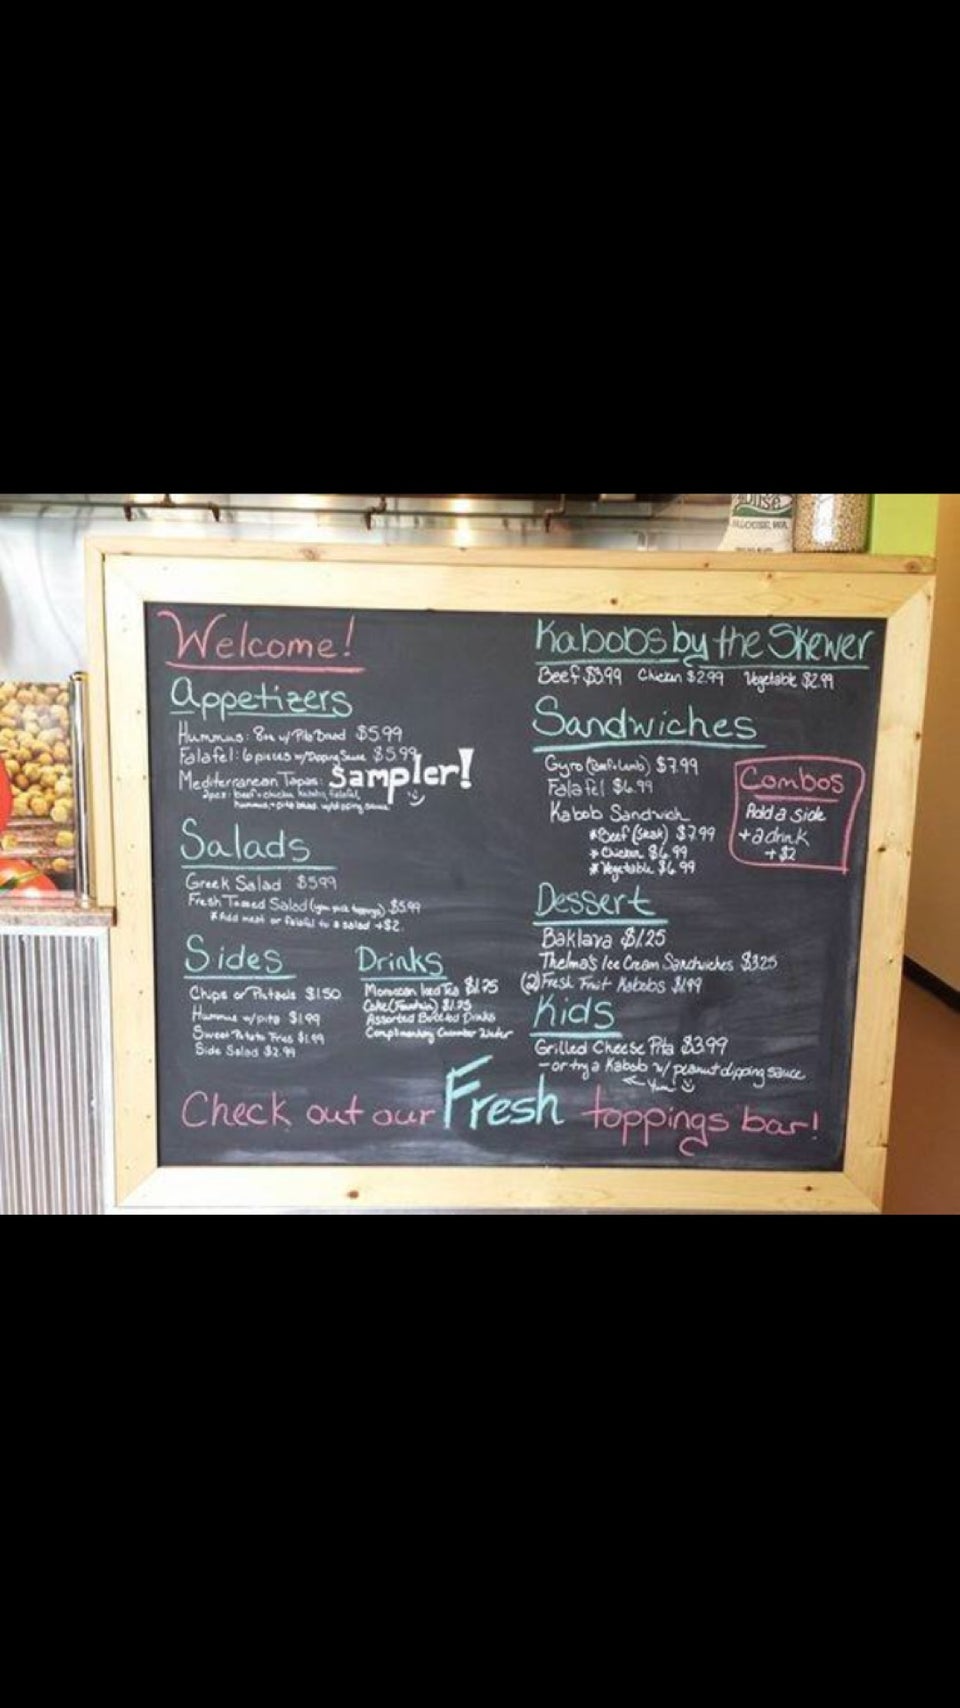 Welcome!
Appetizers
Hummus: 8oz w/ Pita Bread $5.99
Falafel: 6 pieces w/ Dipping Sauce $5.99
Mediterranean Tapas: Sampler!
2pcs: beef + chicken kabobs, falafel,
hummus, + pita bread w/dipping sauce
Salads
Greek Salad $5.99
Fresh Tossed Salad (you pick toppings) $5.99
*Add meat or falafel to a salad +$2
Sides
Chips or Pretzels $1.50
Hummus w/pita $1.99
Sweet Potato Fries $1.99
Side Salad $2.99
Drinks
Moroccan Iced Tea $1.75
Coke (Fountain) $1.75
Assorted Bottled Drinks
Complimentary Cucumber Water
Kabobs by the Skewer
Beef $3.99 Chicken $2.99 Vegetable $2.99
Sandwiches
Gyro (Beef+Lamb) $7.99
Falafel $6.99
Kabob Sandwich
*Beef (Steak) $7.99
*Chicken $6.99
*Vegetable $6.99
Combos
Add a side
+ a drink
+ $2
Dessert
Baklava $1.25
Thelma's Ice Cream Sandwiches $3.25
(2) Fresh Fruit Kabobs $1.99
Kids
Grilled Cheese Pita $3.99
- or try a Kabob w/ peanut dipping sauce
Yum
Check out our Fresh toppings bar!